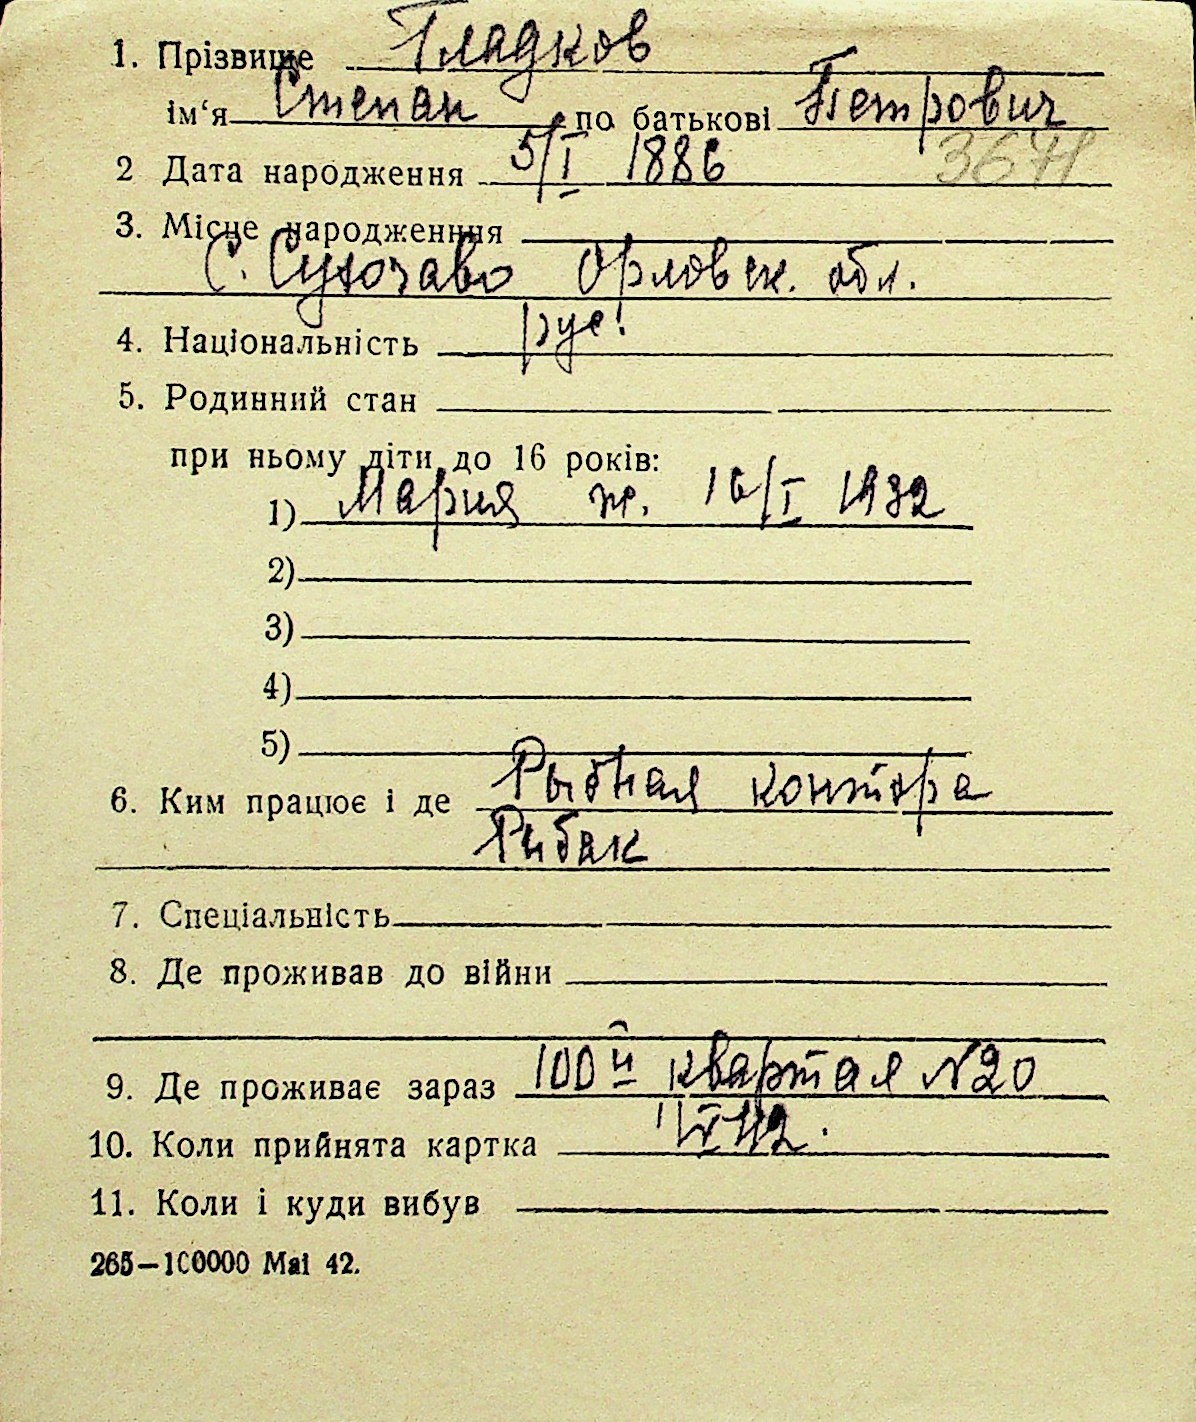 1. Прізвище Гладков
ім‘я Степан по батькові Петрович
2 Дата народження 5/I 1886 3671
3. Місце народження
С. Орловск. обл.
4. Національність рус.
5. Родинний стан
при ньому діти до 16 років:
1) Мария ж. 16/I 1932
2)
3)
4)
5)
6. Ким працює і де Рыбная контора
Рибак
7. Спеціальність
8. Де проживав до війни
9. Де проживає зараз 100й квартал N20
10. Коли прийнята картка
11. Коли і куди вибув
265—100000 Mai 42.